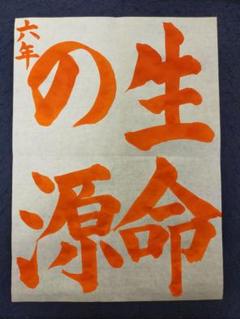 生命
の源
六年